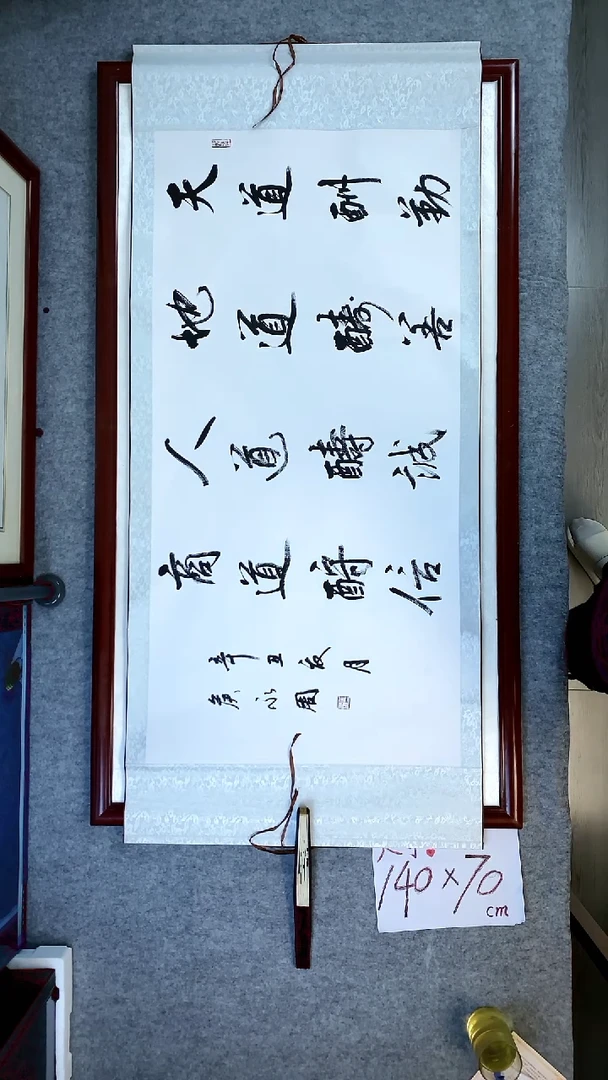 天道酬勤
地道酬善
人道酬诚
商道酬信
辛丑夏月
周
140×70
cm